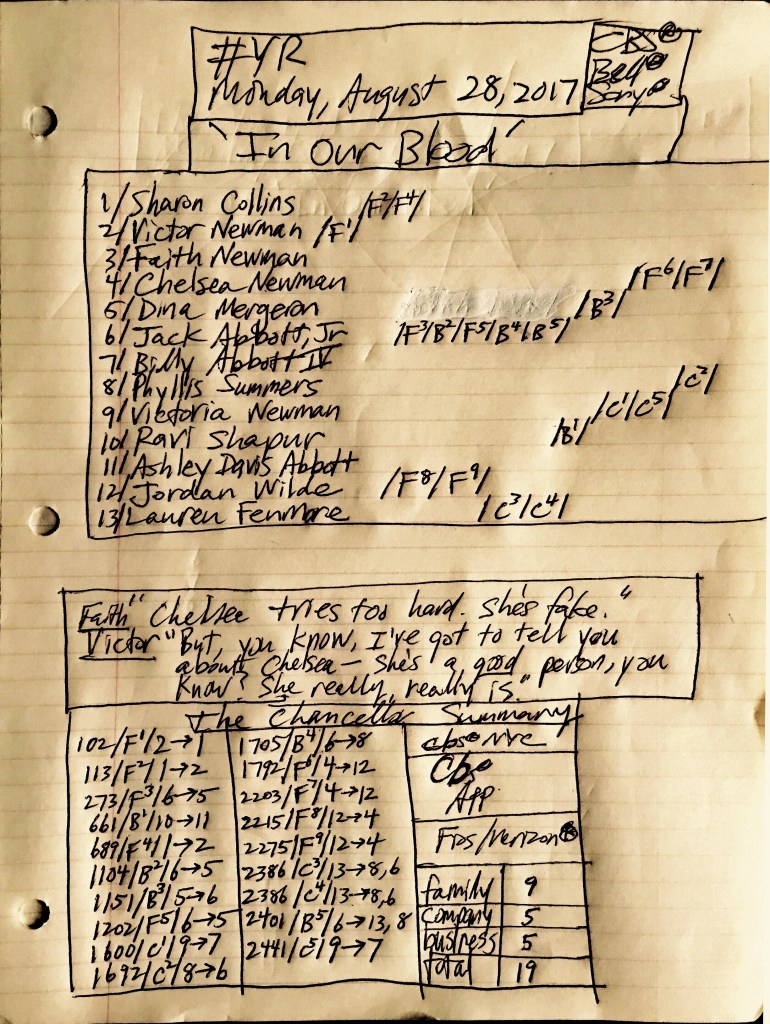 #YR
Monday, August 28, 2017
CBS®
Bell®
Sony®
"In Our Blood"
1/Sharon Collins /F²/F⁴/
2/Victor Newman /F¹/
3/Faith Newman
4/Chelsea Newman /F⁶/F⁷/
5/Dina Mergeron /B³/
6/Jack Abbott, Jr /F³/B²/F⁵/B⁴/B⁵/
7/Billy Abbott IV
8/Phyllis Summers /C²/
9/Victoria Newman /C¹/C⁵/
10/Ravi Shapur /B¹/
11/Ashley Davis Abbott
12/Jordan Wilde /F⁸/F⁹/
13/Lauren Fenmore /C³/C⁴/
Faith "Chelsea tries too hard. She's fake."
Victor "But, you know, I've got to tell you
about Chelsea — She's a good person, you
know? She really, really is."
The Chancellor Summary
102/F¹/2→1
113/F²/1→2
273/F³/6→5
661/B¹/10→11
689/F⁴/1→2
1104/B²/6→5
1151/B³/5→6
1202/F⁵/6→5
1600/C¹/9→7
1692/C²/8→6
1705/B⁴/6→8
1792/F⁶/4→12
2203/F⁷/4→12
2215/F⁸/12→4
2275/F⁹/12→4
2386/C³/13→8,6
2386/C⁴/13→8,6
2401/B⁵/6→13,8
2441/C⁵/9→7
cbs®
Cbs®
App
Fios/Verizon®
family 9
company 5
business 5
total 19